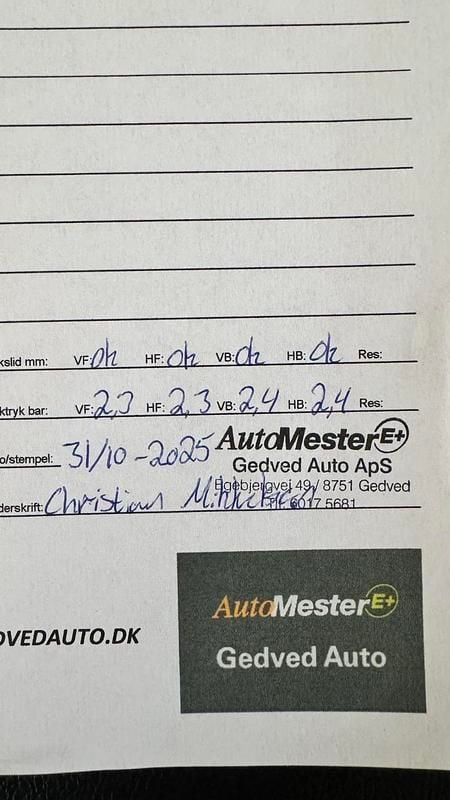 kslid mm: VF: ok HF: ok VB: ok HB: ok Res:
ktryk bar: VF: 2,3 HF: 2,3 VB: 2,4 HB: 2,4 Res:
o/stempel: 31/10-2025 AutoMester E+
Gedved Auto ApS
Egebjergvej 49 / 8751 Gedved
derskrift: Christian 6017 5681
OVEDAUTO.DK
AutoMester E+
Gedved Auto